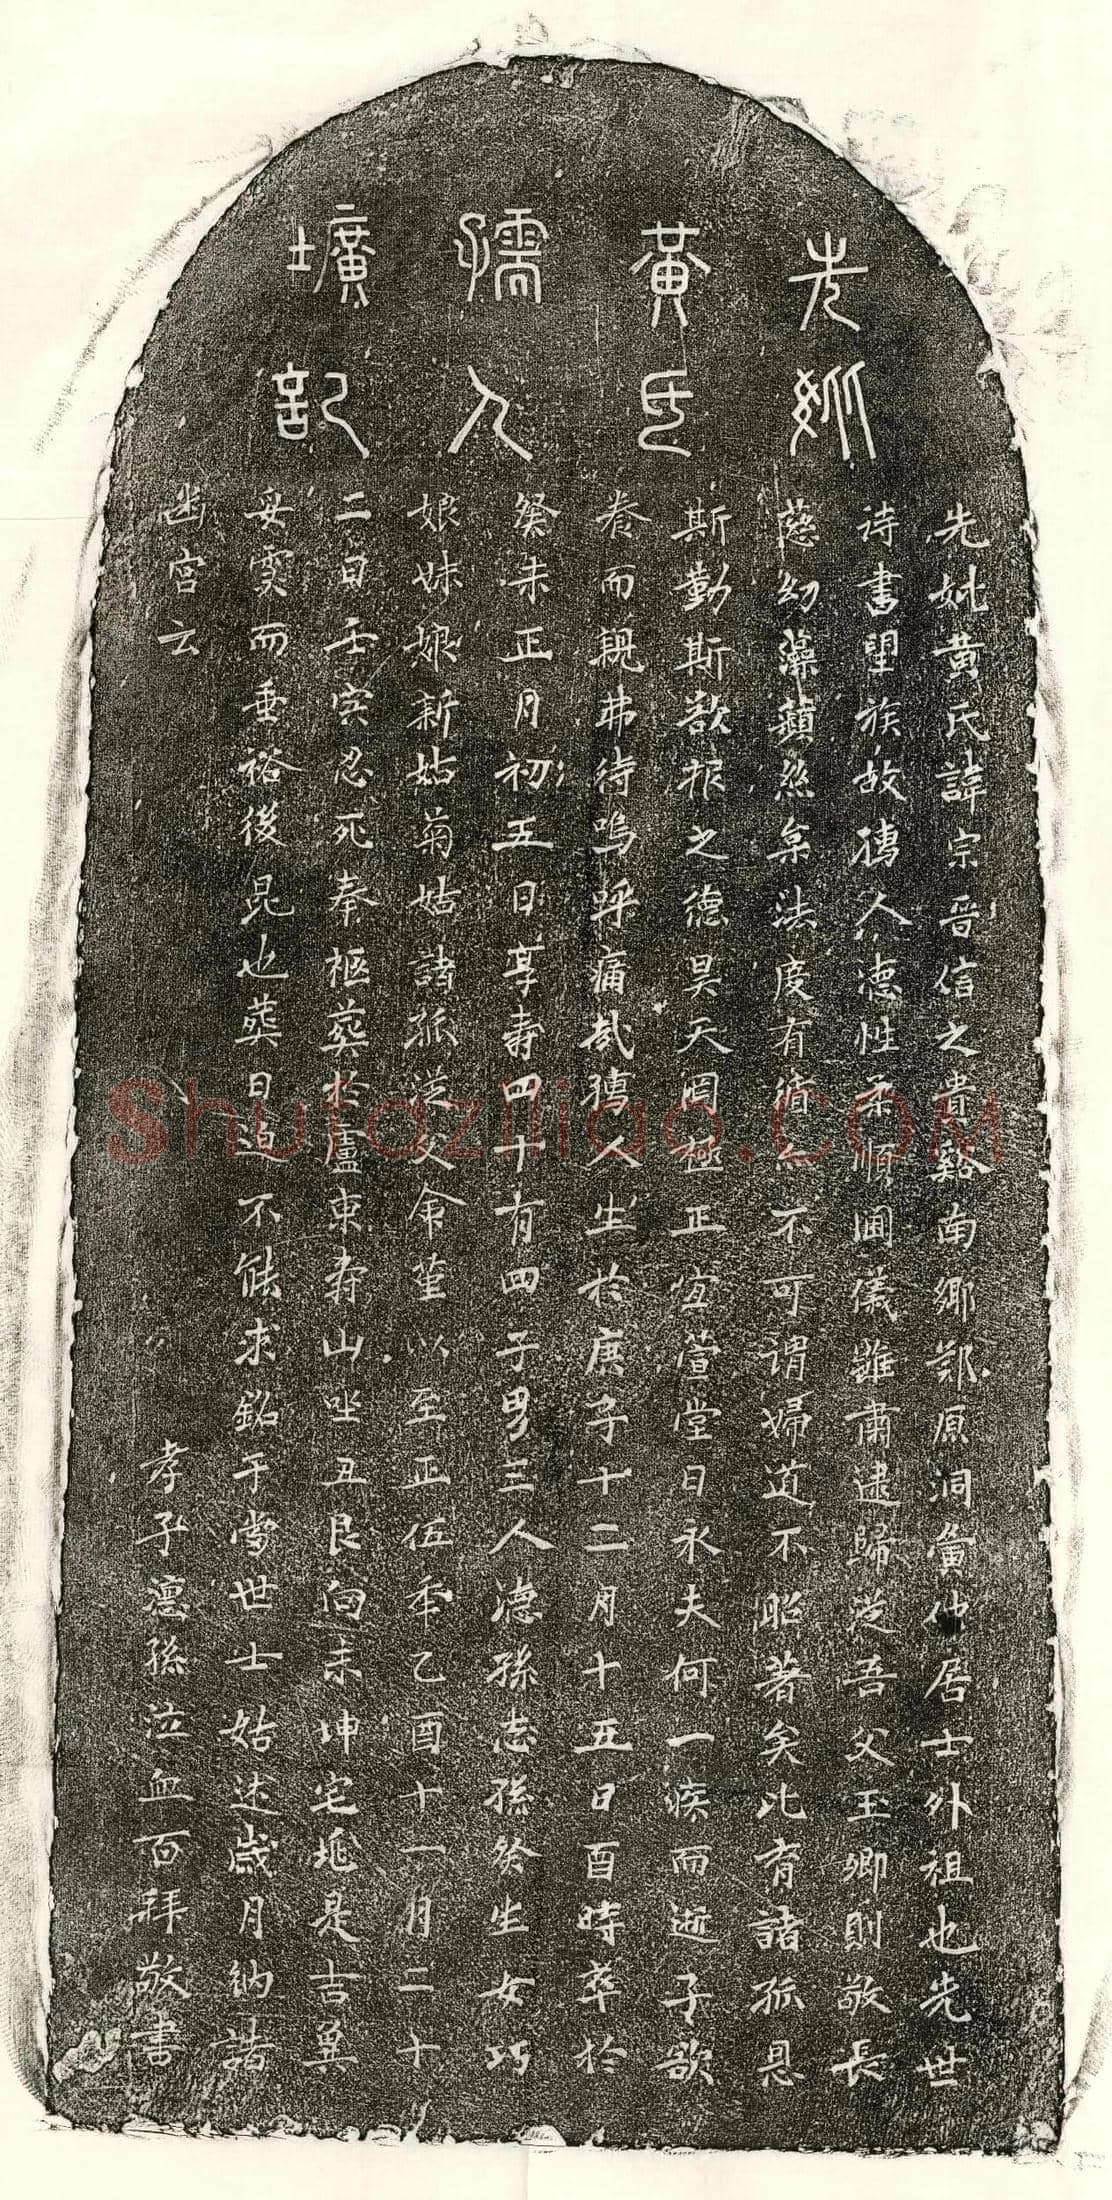 先妣
黃氏
孺人
壙記
先妣黃氏諱宗晋信之貴谿南鄉鄂原洞賓仙居士外祖也先世
詩書望族故孺人德性柔順閫儀雝肅逮歸从吾父玉卿則敬長
慈幼藻蘋絲枲法度有循 不可謂婦道不昭著矣比育諸孤恩
斯勤斯欲报之德昊天罔極正宜萱堂日永夫何一疾而逝子欲
养而親弗待嗚呼痛哉孺人生於庚子十二月十五日酉時卒於
癸未正月初五日享壽四十有四子男三人德孫志孫癸生女巧
娘妹娘新姑菊姑諸孤從父命 以至正伍年乙酉十一月二十
二日壬寅忍死奉柩葬於廬東寿山坐丑艮向未坤宅地是吉冀
妥靈而垂裕後昆也葬日迫不能求銘于當世士姑述歲月納諸
幽宫云
孝子德孫泣血百拜敬書
Shufaziliao.COM